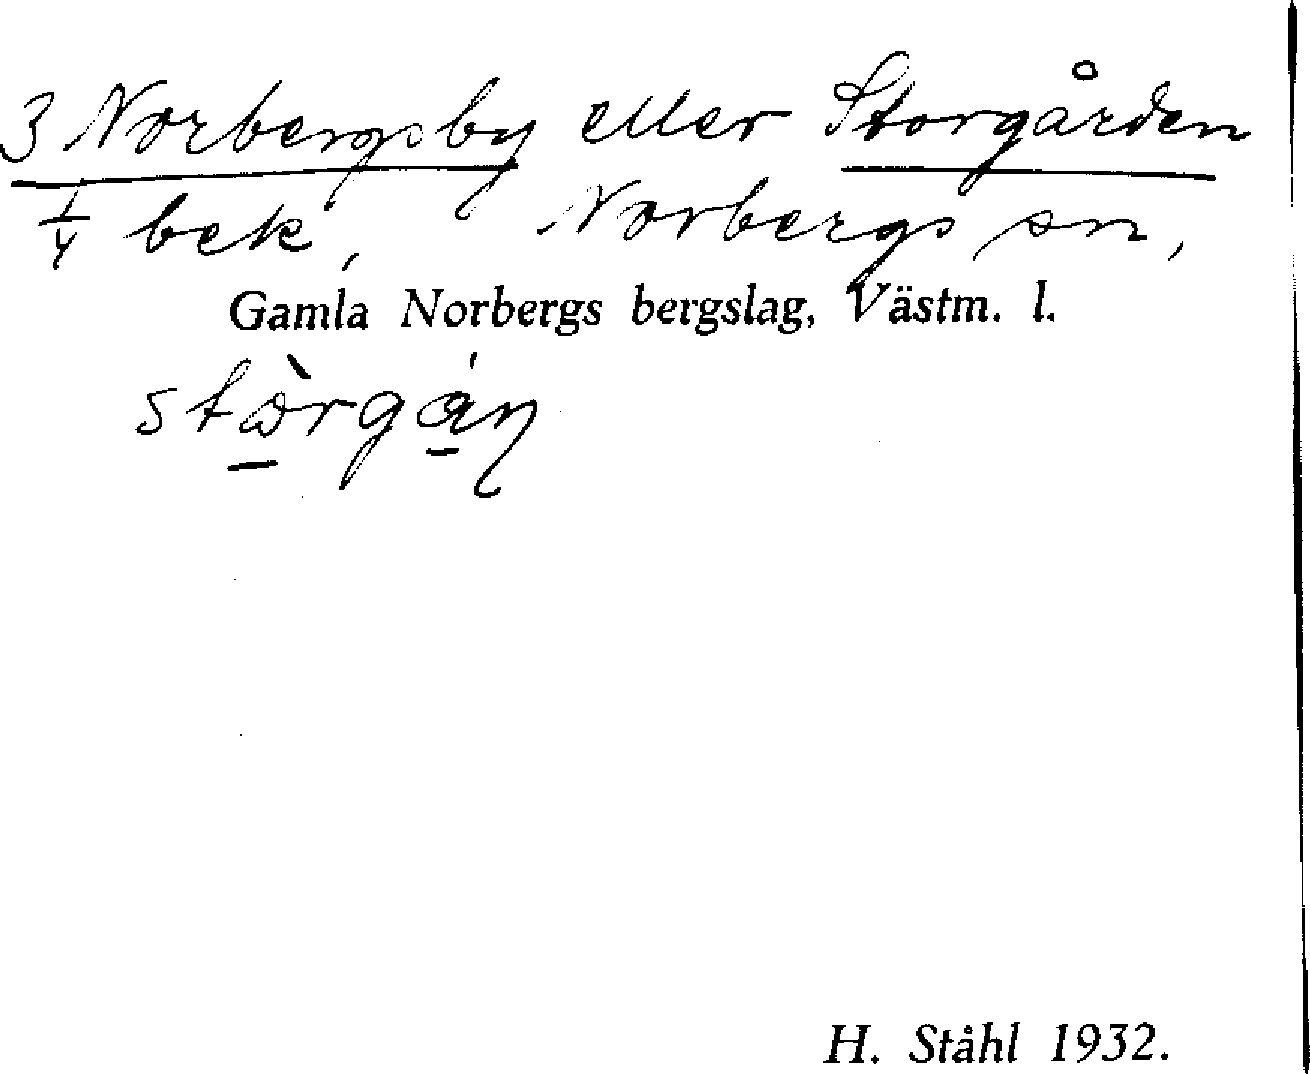 3 Norbergsby eller Storgården
1/4 bek, Norbergs sn,
Gamla Norbergs bergslag, Västm. l.
stòrgáŋ
H. Ståhl 1932.